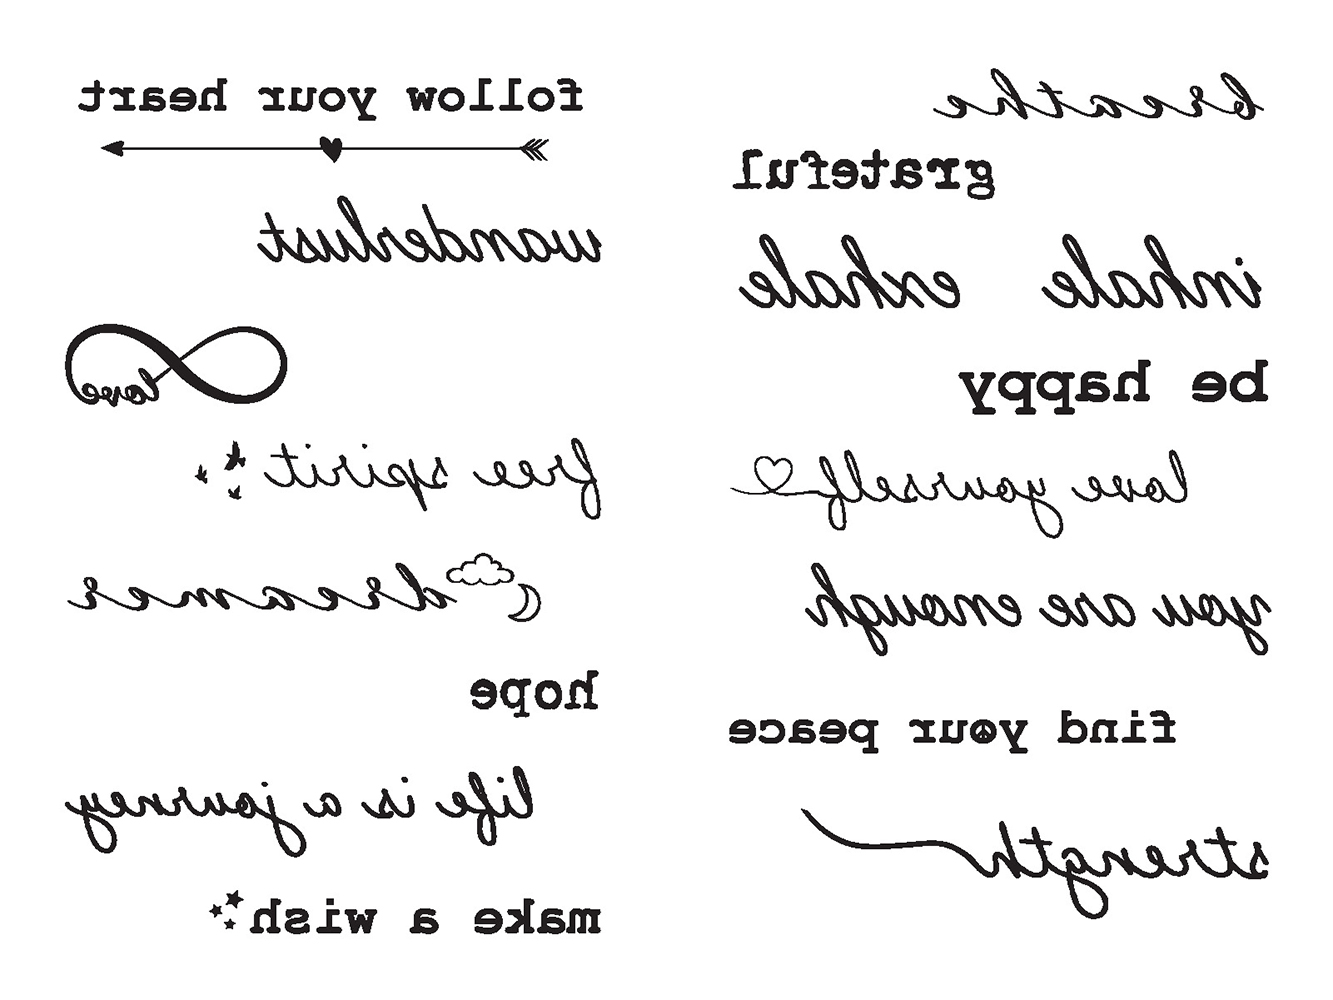 follow your heart
wanderlust
love
free spirit
dreamer
hope
life is a journey
make a wish
breathe
grateful
inhale exhale
be happy
love yourself
you are enough
find your peace
strength